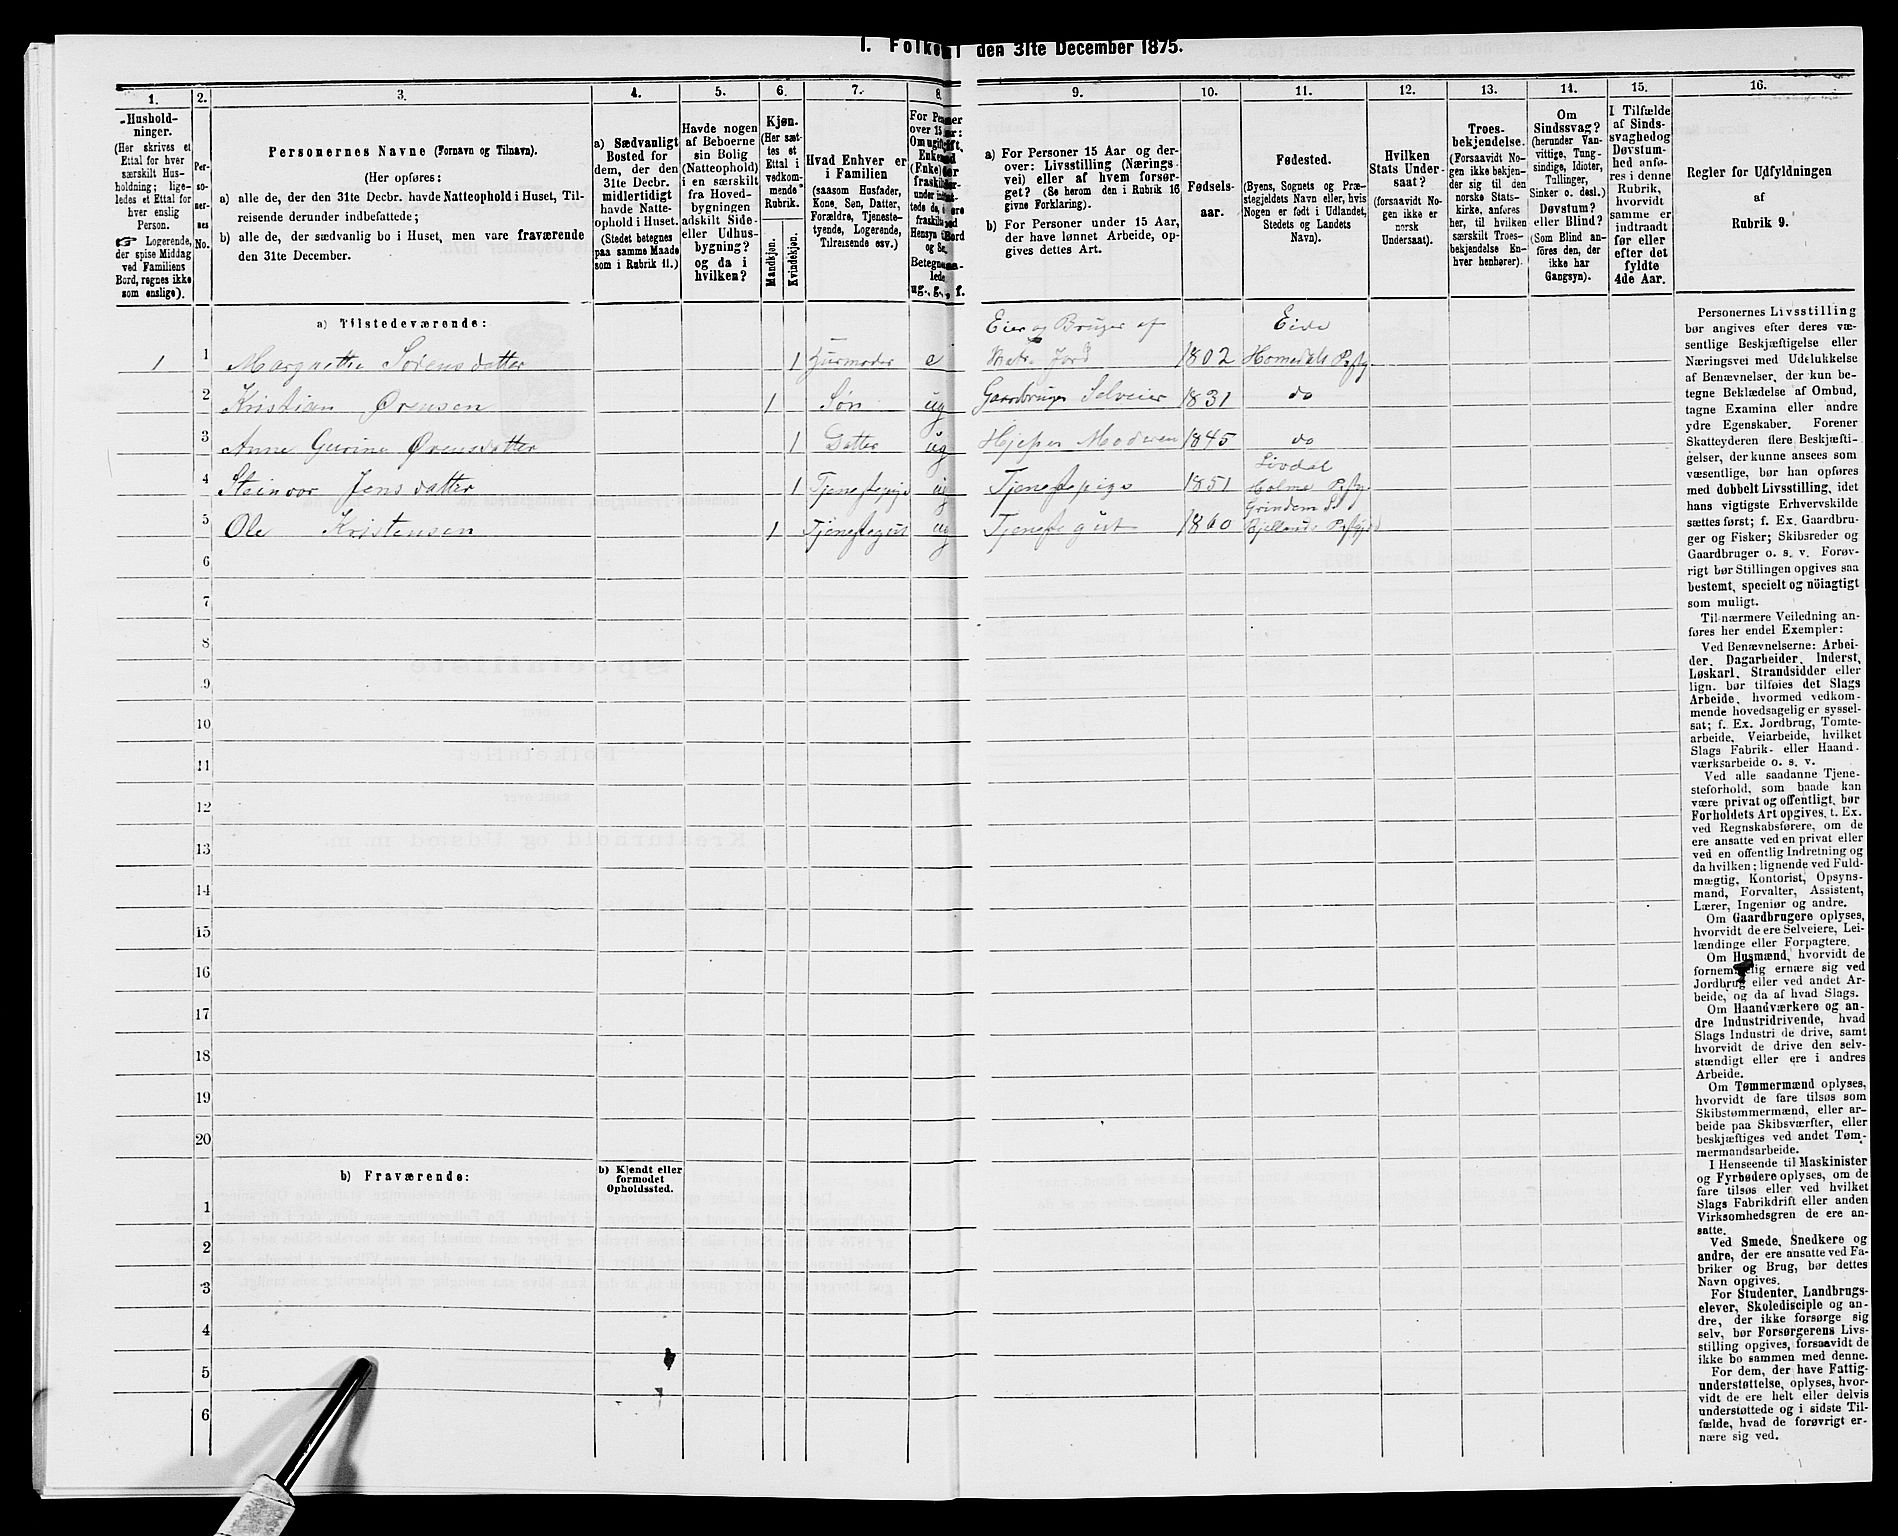 1. Folke    den 31te December 1875.
1.
2.
3.
4.
5.
6.
7.
8.
9.
10.
11.
12.
13.
14.
15.
16.
Hushold-
ninger.
(Her skrives et
Ettal for hver
særskilt Hus-
holdning; lige-
ledes et Ettal for
hver enslig
Person.
☞ Logerende,
der spise Middag
ved Familiens
Bord, regnes ikke
som enslige).
Per-
so-
ner-
nes
No.
Personernes Navne (Fornavn og Tilnavn).
(Her opføres:
a) alle de, der den 31te Decbr. havde Natteophold i Huset, Til-
reisende derunder indbefattede;
b) alle de, der sædvanlig bo i Huset, men vare fraværende
den 31te December.
a) Sædvanligt
Bosted for
dem, der den
31te Decbr.
midlertidigt
havde Natte-
ophold i Huset.
(Stedet betegnes
paa samme Maade
som i Rubrik 11.)
Havde nogen
af Beboerne
sin Bolig
(Natteophold)
i en særskilt
fra Hoved-
bygningen
adskilt Side-
eller Udhus-
bygning?
og da i
hvilken?
Kjøn.
(Her sæt-
tes et
Ettal i
vedkom-
mende
Rubrik.
Mandkjøn.
Kvindekjøn.
Hvad Enhver er
i Familien
(saasom Husfader,
Kone, Søn, Datter,
Forældre, Tjeneste-
tyende, Logerende,
Tilreisende osv.)
ug., g., f.
a) For Personer 15 Aar og der-
over: Livsstilling (Nærings-
vei) eller af hvem forsør-
get? (Se herom den i Rubrik 16
givne Forklaring).
b) For Personer under 15 Aar,
der have lønnet Arbeide, op-
gives dettes Art.
Fødsels-
aar.
Fødested.
(Byens, Sognets og Præ-
stegjeldets Navn eller, hvis
Nogen er født i Udlandet,
Stedets og Landets
Navn).
Hvilken
Stats Under-
saat?
(forsaavidt No-
gen ikke er
norsk
Undersaat).
Troes-
bekjendelse.
(Forsaavidt No-
gen ikke bekjen-
der sig til den
norske Stats-
kirke, anføres
her, til hvilken
særskilt Troes-
bekjendelse En-
hver henhører).
Om
Sindssvag?
(herunder Van-
vittige, Tung-
sindige, Idioter,
Tullinger,
Sinker o. desl.)
Døvstum?
eller Blind?
(Som Blind an-
føres den, der
ikke har
Gangsyn).
I Tilfælde
af Sinds-
svaghed og
Døvstum-
hed anfø-
res i denne
Rubrik,
hvorvidt
samme er
indtraadt
før eller
efter det
fyldte
4de Aar.
Regler for Udfyldningen
af
Rubrik 9.
a) Tilstedeværende:
Eier og Bruger af
Eide
1 1 Margrette Sørensdatter 1 Husmoder e Matr. Jord 1802 Homedals Pstg.
2 Kristian Ørensen 1 Søn ug Gaardbruger Selveier 1831 do
3 Anne Gurine Ørensdatter 1 Datter ug Hjelper Moderen 1845 do
4 Steinvor Jensdatter 1 Tjenestepige ug Tjenestepige 1851
5 Ole Kristensen 1 Tjenestegut ug Tjenestegut 1860
6
7
8
9
10
11
12
13
14
15
16
17
18
19
20
b) Fraværende:
b) Kjendt eller
formodet
Opholdssted.
1
2
3
4
5
6
Personernes Livsstilling
bør angives efter deres væ-
sentlige Beskjæftigelse eller
Næringsvei med Udelukkelse
af Benævnelser, der kun be-
tegne Beklædelse af Ombud,
tagne Examina eller andre
ydre Egenskaber. Forener
Skatteyderen flere Beskjæfti-
gelser, der kunne ansees som
væsentlige, bør han opføres
med dobbelt Livsstilling, idet
hans vigtigste Erhvervskilde
sættes først; f. Ex. Gaardbru-
ger og Fisker; Skibsreder og
Gaardbruger o. s. v. Forøv-
rigt bør Stillingen opgives saa
bestemt, specielt og nöiagtigt
som muligt.
Til nærmere Veiledning an-
føres her endel Exempler:
Ved Benævnelserne: Arbei-
der, Dagarbeider, Inderst,
Løskarl, Strandsidder eller
lign. bør tilføies det Slags
Arbeide, hvormed vedkom-
mende hovedsagelig er syssel-
sat; f. Ex. Jordbrug, Tomte-
arbeide, Veiarbeide, hvilket
Slags Fabrik- eller Haand-
værksarbeide o. s. v.
Ved alle saadanne Tjene-
steforhold, som baade kan
være privat og offentligt, bør
Forholdets Art opgives, t. Ex.
ved Regnskabsførere, om de
ere ansatte ved en privat eller
ved en offentlig Indretning og
da hvilken; lignende ved Fuld-
mægtig, Kontorist, Opsyns-
mand, Forvalter, Assistent,
Lærer, Ingeniør og andre.
Om Gaardbrugere oplyses,
hvorvidt de ere Selveiere, Lei-
lændinge eller Forpagtere.
Om Husmænd, hvorvidt de
fornemmelig ernære sig ved
Jordbrug eller ved andet Ar-
beide, og da af hvad Slags.
Om Haandværkere og an-
dre Industridrivende, hvad
Slags Industri de drive, samt
hvorvidt de drive den selv-
stændigt eller ere i andres
Arbeide.
Om Tømmermænd oplyses,
hvorvidt de fare tilsøs som
Skibstømmermænd, eller ar-
beide paa Skibsværfter, eller
beskjæftiges ved andet Tøm-
mermandsarbeide.
I Henseende til Maskinister
og Fyrbødere oplyses, om de
fare tilsøs eller ved hvilket
Slags Fabrikdrift eller anden
Virksomhedsgren de ere an-
satte.
Ved Smede, Snedkere og
andre, der ere ansatte ved Fa-
briker og Brug, bør dettes
Navn opgives.
For Studenter, Landbrugs-
elever, Skoledisciple og an-
dre, der ikke forsørge sig
selv, bør Forsørgerens Livs-
stilling opgives, forsaavidt de
ikke bo sammen med denne.
For dem, der have Fattig-
understøttelse, oplyses, hvor-
vidt de ere helt eller delvis
understøttede og i sidste Til-
fælde, hvad de forøvrigt er-
nære sig ved.